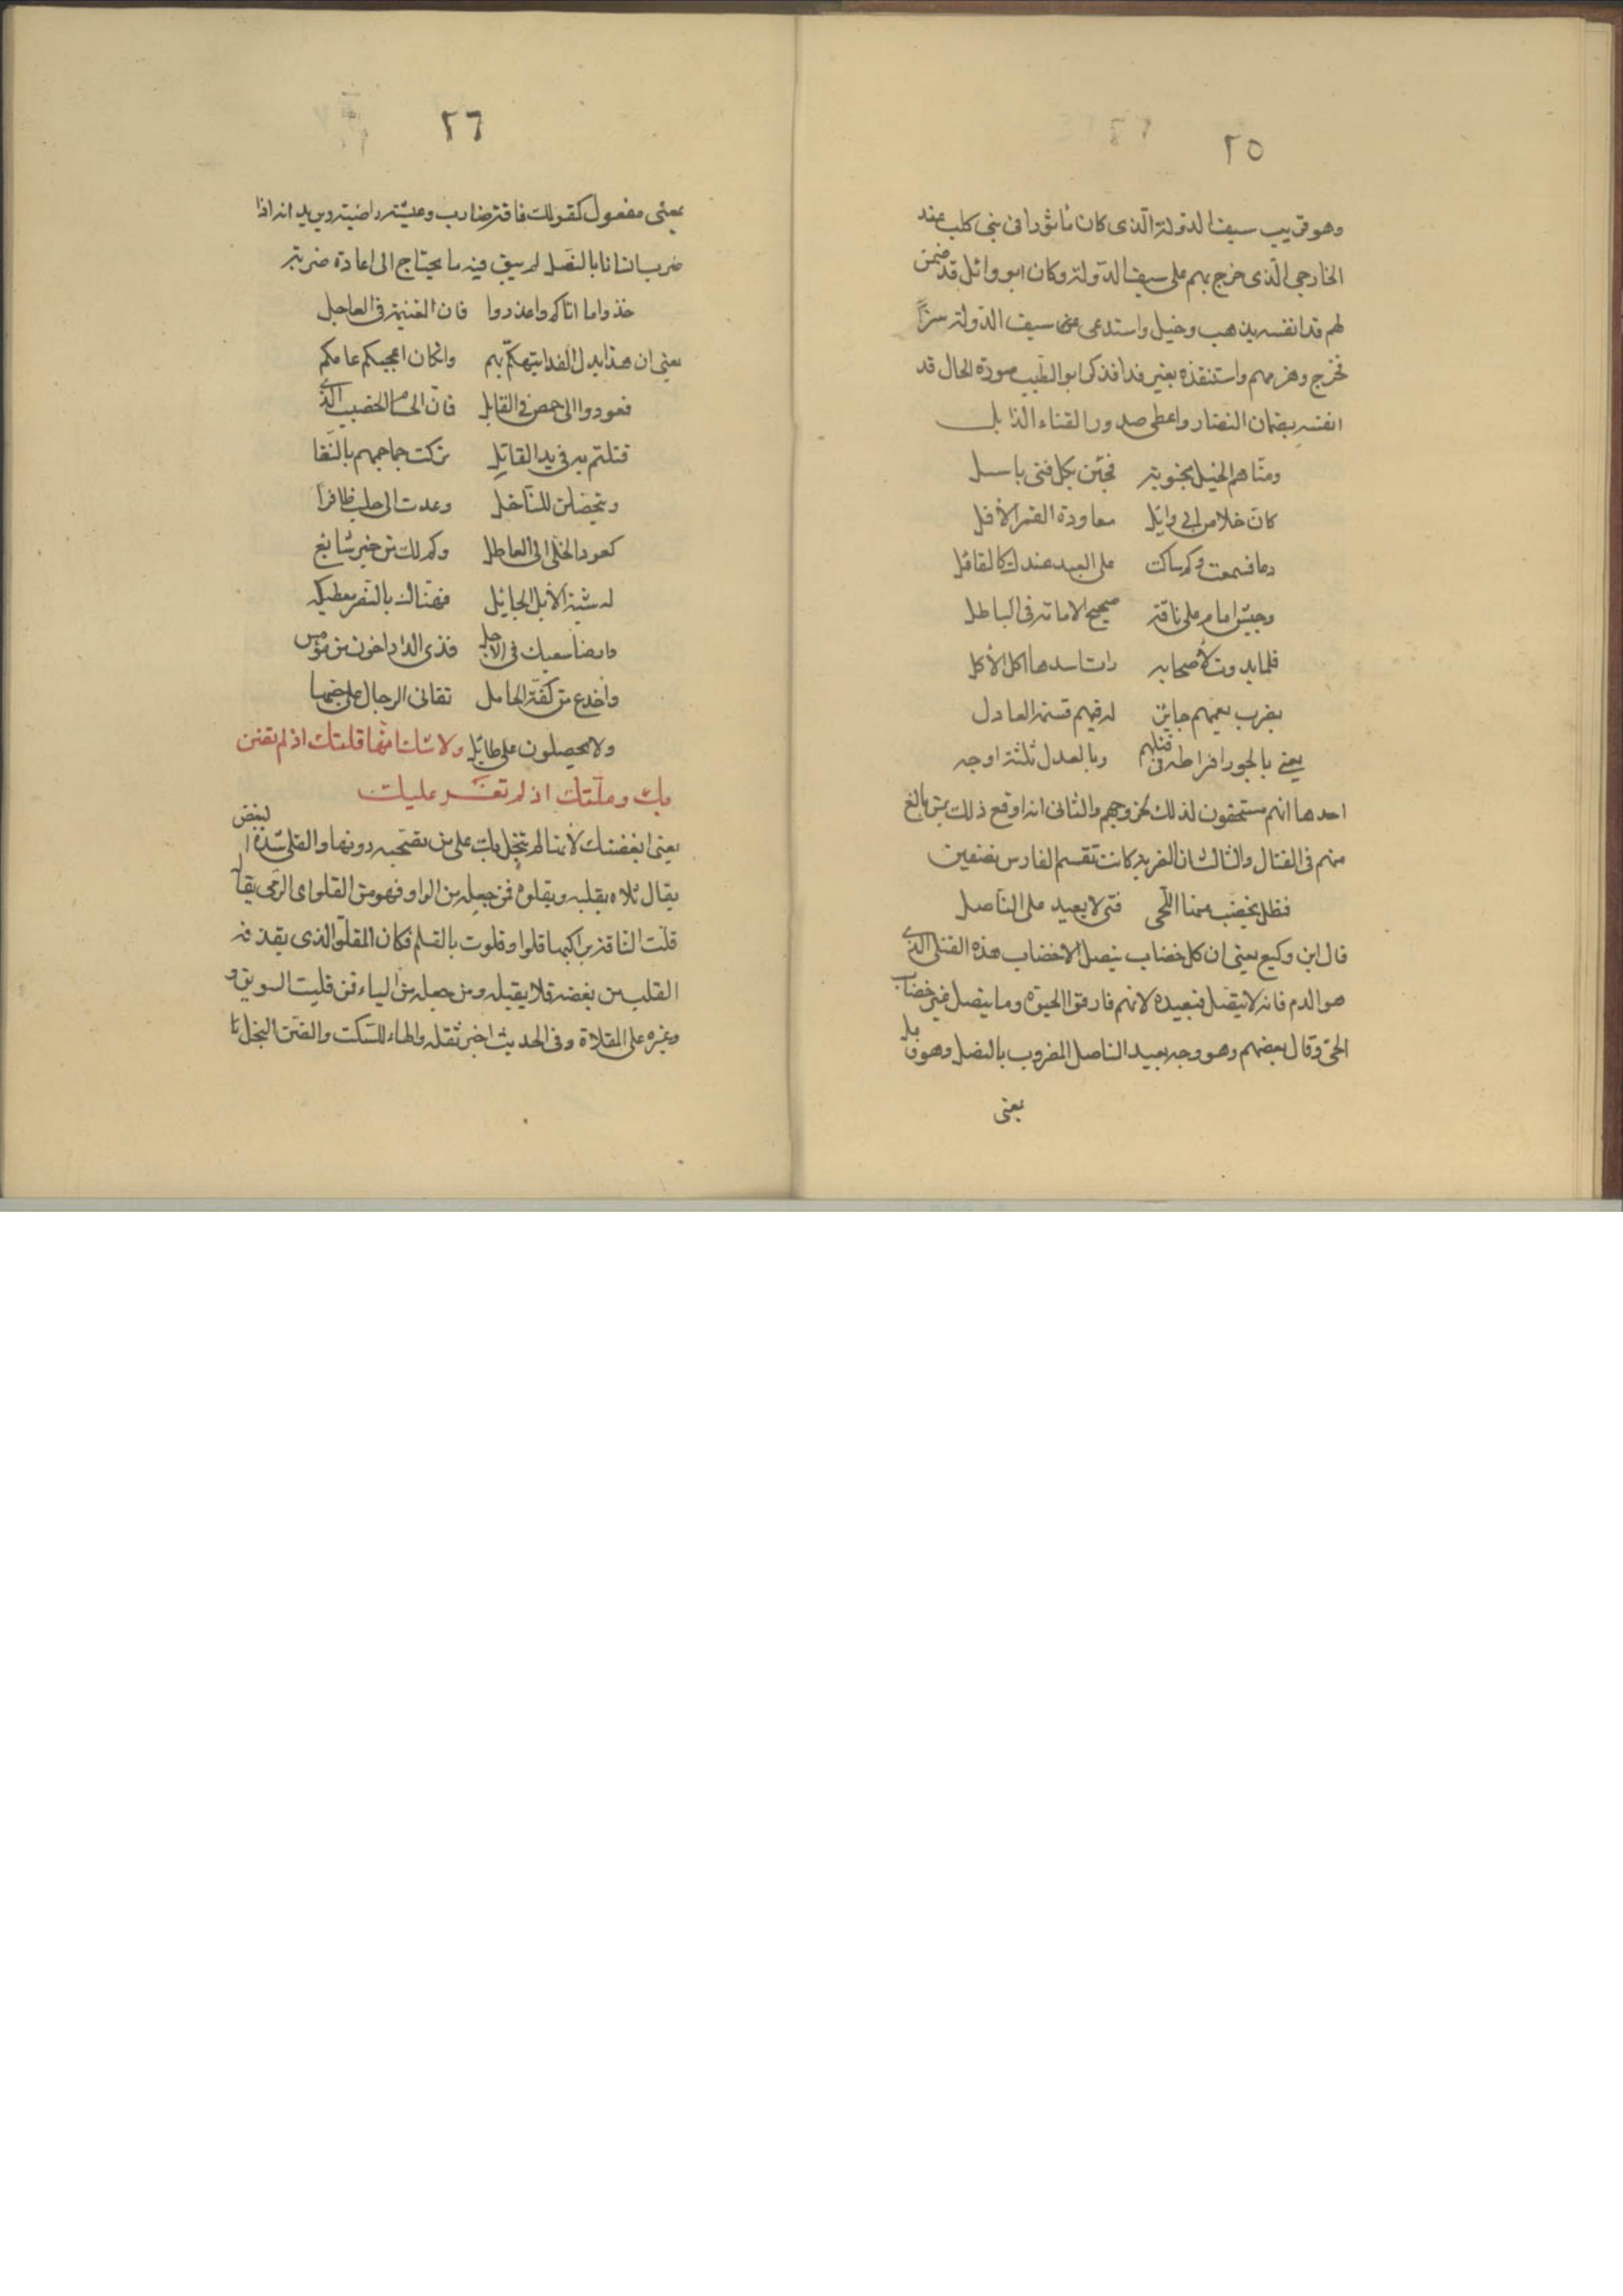 ٢٥
وهو قريب سيف الدولة الذى كان مأثورا فى بنى كلب عند
الخارجي الذى خرج بهم على سيف الدولة وكان ابو وائل قد ضمن
لهم فدا نفسه بذهب وخيل واستدعى سيف الدولة سرّاً
فخرج وهزمهم واستنقذه بغير فدا فذكر ابو الطيب صورة الحال قد
انفسه بضمان النضار واعطى صدور القناء الذابل
ومنّاهم الخيل مجنوبة فجئن بكل فتى باسل
كان خلاص ابى وايل معاودة القمر الآفل
دعا فسمعت وكم ساكت على البعد عندك كالقائل
وجيش امام على ناقة صحيح الامامة فى الباطل
فلما بدوت لأصحابه رات اسدها اكل الأكل
بضرب يعمهم جايز له فيهم قسمة العادل
يعنى بالجور افراطه فى قتلهم وبالعدل ثلثة اوجه
احدها انهم مستحقون لذلك لخروجهم والثانى انه اوقع ذلك بمن بالغ
منهم فى القتال والثالث ان الضربة كانت تقسم الفارس نصفين
فظل يخضب منها اللحى فتى لا يعيد على الناصل
قال ابن وكيع يعنى ان كل خضاب ينصل الا خضاب هذه القتلى الذى
هو الدم فانه لا ينصل فيعيده لانهم فارقوا الحيوة وما ينصل خضاب
الحىّ وقال بعضهم وهو وجه بعيد الناصل المضروب بالنصل وهو
يعنى
٢٦
بمعنى مفعول كقولك ناقة ضارب وعيشة راضية ويريد انه اذا
ضرب انسانا بالنصل لم يبق فيه ما يحتاج الى اعادة ضربة
خذوا ما اتاكم واعذروا فان الغنيمة فى العاجل
يعنى ان هذا بدل الفدا يتهكّم بهم وان كان اعجبكم عامكم
فعودوا الى حمص فى القابل فان الحسام الخضيب الذى
قتلتم به فى يد القاتِل تركت جماجمهم بالنقا
ويتحصلن للناخل وعدت الى حلب ظافراً
كعود الحلى الى العاطل وكم لك من خبر شايع
له شية الأبلق الجائل فهنّاك بالنصر معطيكه
وارضا سعيك فى الآجل فذى الدار اخون من مومس
واخدع من كفة الحامل تفانى الرجال على حبها
ولا يحصلون على طايل ولا شك انها قلتك اذ لم تضنن
بك وملّتك اذ لم تغـر عليك
يعنى ابغضتك لأنها لم تبخل بك على من تصحبه دونها والقلى شدة البغض
يقال قلاه يقليه ويقلوه فمن جعله من الواو فهو من القلو اى الرمى يقال
قلت الناقة براكبها قلوا وقلوت بالقلة فكان المقلوّ الذى يقذفه
القلب من بغضه فلا يقبله ومن جعله من الياء فمن قليت السويق و
وغيره على المقلاة وفى الحديث اخبر تقله والهاء للسكت والضن البخل